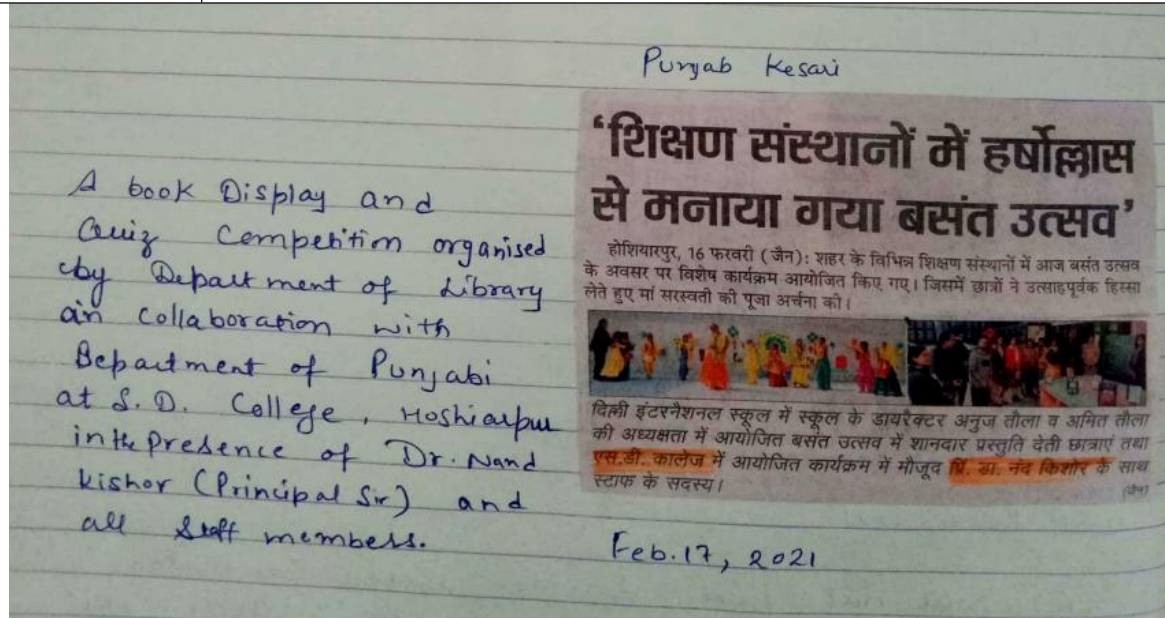 A book Display and
Quiz Competition organised
by Department of Library
in collaboration with
Department of Punjabi
at S.D. College, Hoshiarpur
in the presence of Dr. Nand
Kishor (Principal Sir) and
all Staff members.
Punjab Kesari
‘शिक्षण संस्थानों में हर्षोल्लास
से मनाया गया बसंत उत्सव’
होशियारपुर, 16 फरवरी (जैन): शहर के विभिन्न शिक्षण संस्थानों में आज बसंत उत्सव
के अवसर पर विशेष कार्यक्रम आयोजित किए गए। जिसमें छात्रों ने उत्साहपूर्वक हिस्सा
लेते हुए मां सरस्वती की पूजा अर्चना की।
दिल्ली इंटरनैशनल स्कूल में स्कूल के डायरैक्टर अनुज तौला व अमित तौला
की अध्यक्षता में आयोजित बसंत उत्सव में शानदार प्रस्तुति देती छात्राएं तथा
एस.डी. कालेज में आयोजित कार्यक्रम में मौजूद प्रिं. डा. नंद किशोर के साथ
स्टाफ के सदस्य।
(जैन)
Feb.17, 2021